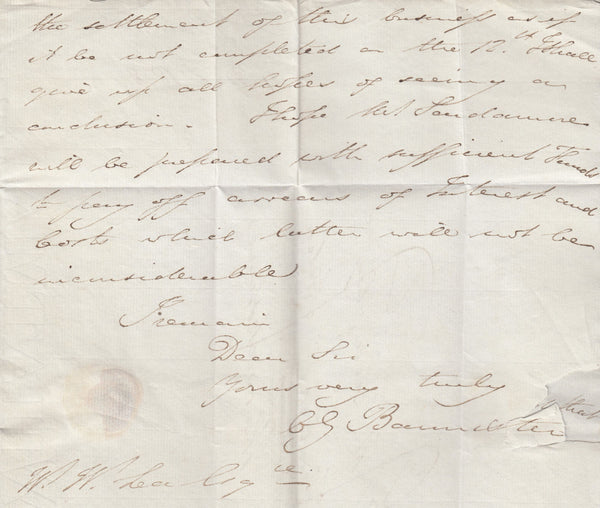 the settlement of this business as if
it be not completed on the 12th I shall
give up all hopes of seeing a
conclusion. I hope Mr Sandamere
will be prepared with sufficient Funds
to pay off arrears of Interest and
Costs which latter will not be
inconsiderable
I remain
Dear Sir
Yours very truly
that
Bannister
W. W. Lea Esqre.